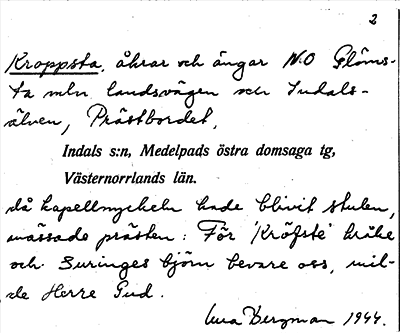 2
Kroppsta, åkrar och ängar N.O Glöms-
ta mln landsvägen och Indals-
älven, Prästbordet,
Indals s:n, Medelpads östra domsaga tg,
Västernorrlands län.
då kapellnyckeln hade blivit stulen,
mässade prästen: För 'Kröfste' kråke
och Suringes björn bevare oss, mil-
de Herre Gud.
Bergman 1944.